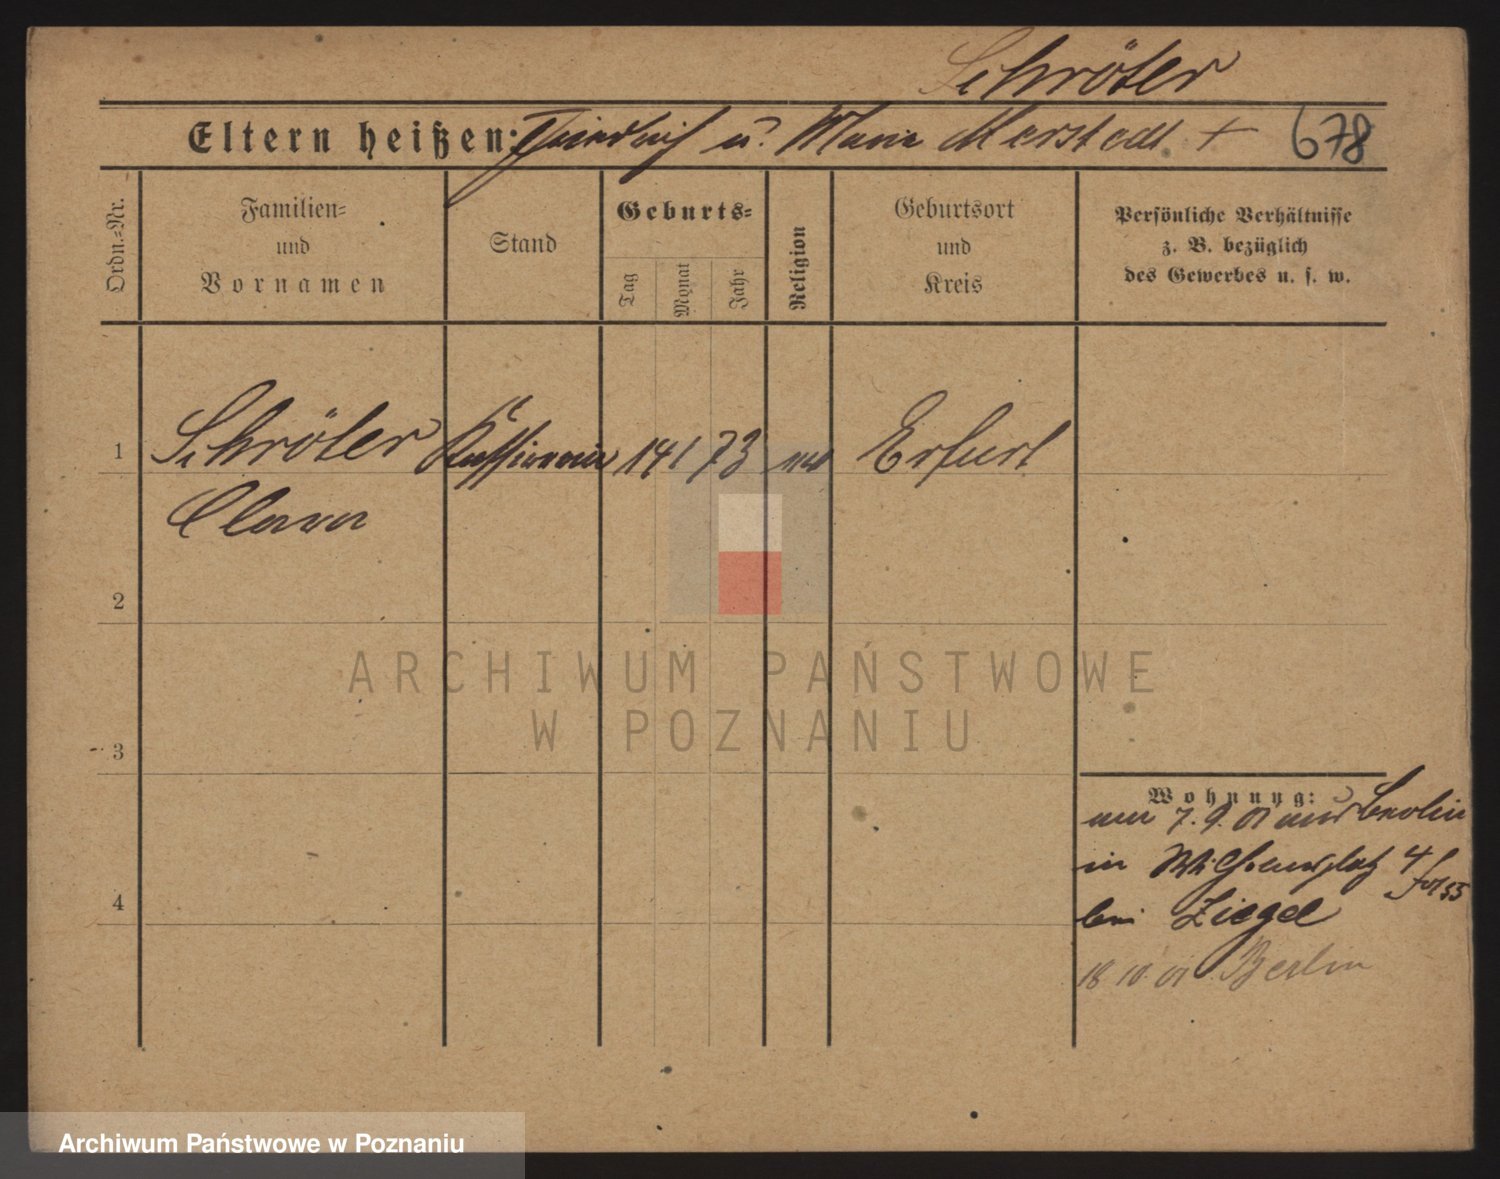 Schröter
Eltern heißen: Friedrich u. Marie Merstedt +
678
Ordn.=Nr.
Familien=
und
Vornamen
Stand
Geburts=
Tag
Monat
Jahr
Religion
Geburtsort
und
Kreis
Persönliche Verhältnisse
z. B. bezüglich
des Gewerbes u. s. w.
1
Schröter Kassiererin 14 1 73 ev Erfurt
Clara
2
3
4
Wohnung:
am 7.9.01 aus Berlin
in Wilhelmsplatz 4
bei Ziegel
18 10 01 Berlin
ARCHIWUM PAŃSTWOWE
W POZNANIU
Archiwum Państwowe w Poznaniu